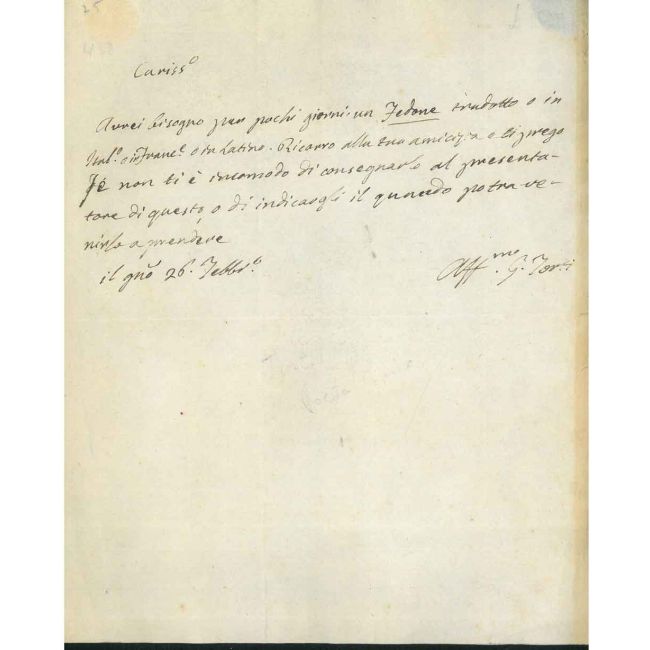 25
Cariss.o
Avrei bisogno per pochi giorni un Fedone tradotto o in
Ital.o o in Franc.e o in Latino. Ricorro alla tua amicizia e ti prego
se non ti è incomodo di consegnarlo al presenta-
tore di questo, o di indicargli il quando potrà ve-
nirlo a prendere
il gno 26. Febbr.o
Aff.mo G. Torti